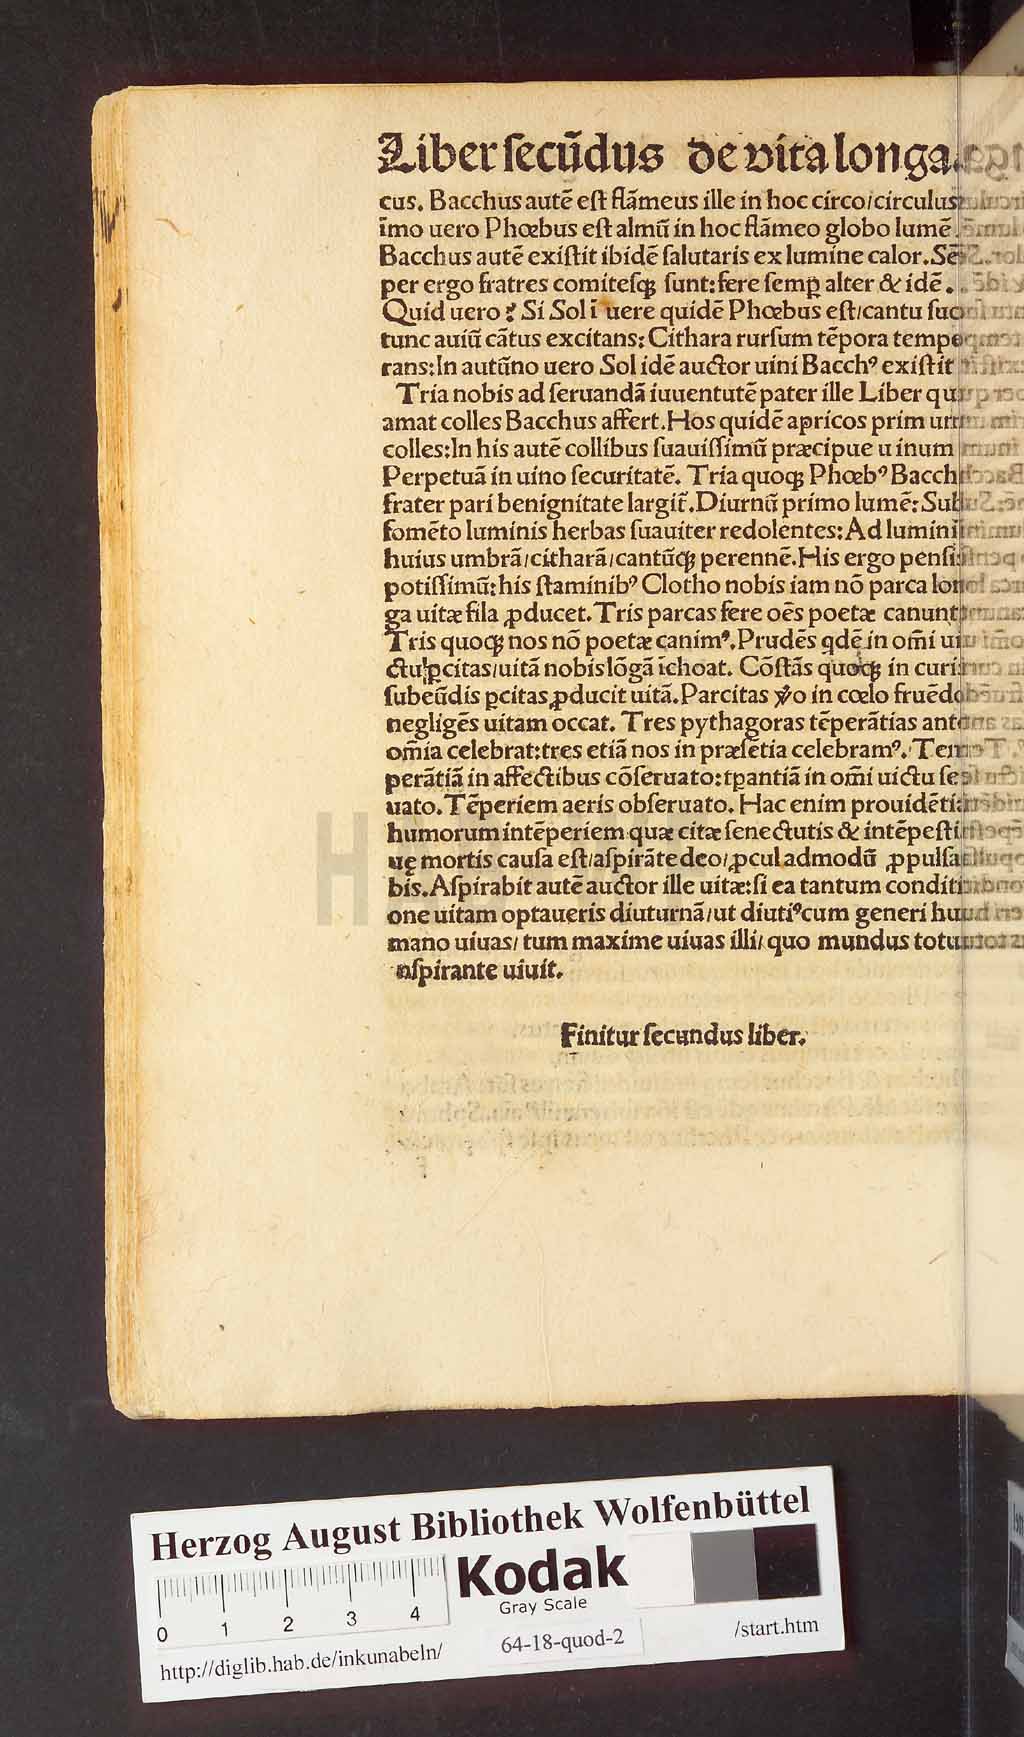 Liber secūdus de vita longa.
cus. Bacchus autē est flāmeus ille in hoc circo/circulus
īmo uero Phœbus est almū in hoc flāmeo globo lumē.
Bacchus autē existit ibidē salutaris ex lumine calor. Sē
per ergo fratres comitesq; sunt: fere semp̲ alter & idē.
Quid uero? Si Sol ī uere quidē Phœbus est/cantu suo
tunc auiū cātus excitans: Cithara rursum tēpora tempe
rans: In autūno uero Sol idē auctor uini Bacchꝰ existit
Tria nobis ad seruandā iuuentutē pater ille Liber qui
amat colles Bacchus affert. Hos quidē apricos prim um
colles: In his autē collibus suauissimū præcipue u inum
Perpetuā in uino securitatē. Tria quoq; Phœbꝰ Bacchi
frater pari benignitate largit̃. Diurnū primo lumē: Sub
fomēto luminis herbas suauiter redolentes: Ad luminis
huius umbrā/citharā/cantūq; perennē. His ergo pensis
potissimū: his staminibꝰ Clotho nobis iam nō parca lon
ga uitæ fila ꝓducet. Tris parcas fere oēs poetæ canunt
Tris quoq; nos nō poetæ canimꝰ. Prudēs qdē in om̄i ui
ctu ꝑcitas/uitā nobis lōgā ichoat. Cōstās quoq; in curis
subeūdis ꝑcitas ꝓducit uitā. Parcitas ꝟo in cœlo fruēdo
negligēs uitam occat. Tres pythagoras tēperātias ante
om̄ia celebrat: tres etiā nos in præsētia celebramꝰ. Tem
perātiā in affectibus cōseruato: tꝑantiā in om̄i uictu ser
uato. Tēperiem aeris obseruato. Hac enim prouidētia
humorum intēperiem quæ citæ senectutis & intēpesti
uę mortis causa est/aspirāte deo/ꝓcul admodū ꝓpulsa
bis. Aspirabit autē auctor ille uitæ: si ea tantum conditi
one uitam optaueris diuturnā/ut diutiꝰ cum generi hu
mano uiuas/ tum maxime uiuas illi/ quo mundus totus
aspirante uiuit.
Finitur secundus liber.
Herzog August Bibliothek Wolfenbüttel
Kodak
Gray Scale
0 1 2 3 4
http://diglib.hab.de/inkunabeln/
64-18-quod-2
/start.htm